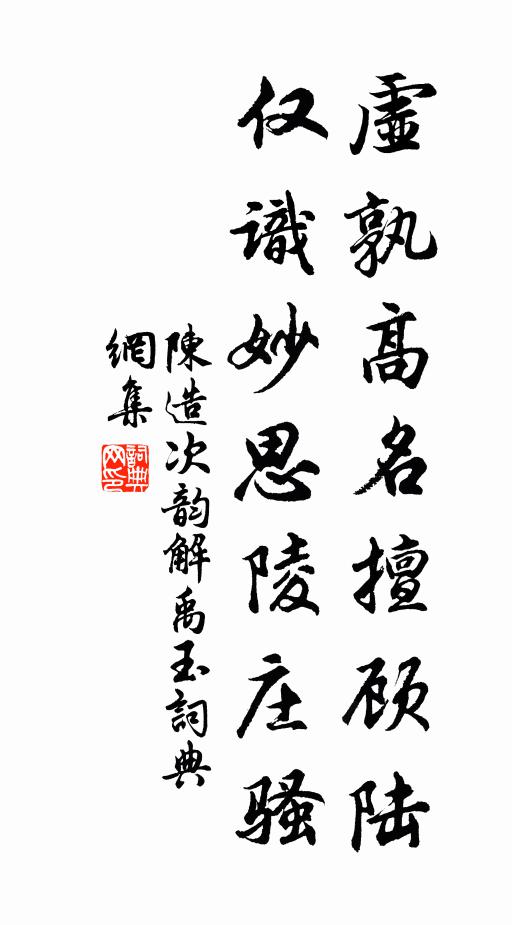 虛孰高名擅顾陆
仅識妙思陵庄骚
陳造次韵解禹玉詞典
網集
詞典网印